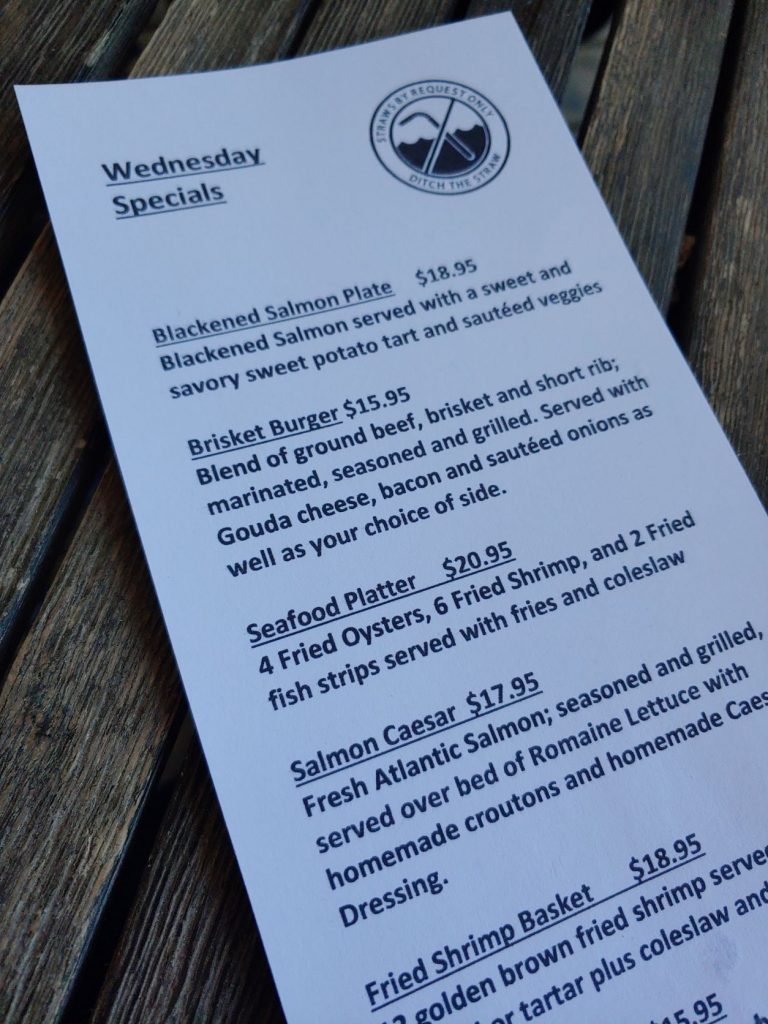 STRAWS BY REQUEST ONLY
DITCH THE STRAW
Wednesday
Specials
Blackened Salmon Plate $18.95
Blackened Salmon served with a sweet and
savory sweet potato tart and sautéed veggies
Brisket Burger $15.95
Blend of ground beef, brisket and short rib;
marinated, seasoned and grilled. Served with
Gouda cheese, bacon and sautéed onions as
well as your choice of side.
Seafood Platter $20.95
4 Fried Oysters, 6 Fried Shrimp, and 2 Fried
fish strips served with fries and coleslaw
Salmon Caesar $17.95
Fresh Atlantic Salmon; seasoned and grilled,
served over bed of Romaine Lettuce with
homemade croutons and homemade Caes
Dressing.
Fried Shrimp Basket $18.95
golden brown fried shrimp serve
or tartar plus coleslaw and
$15.95